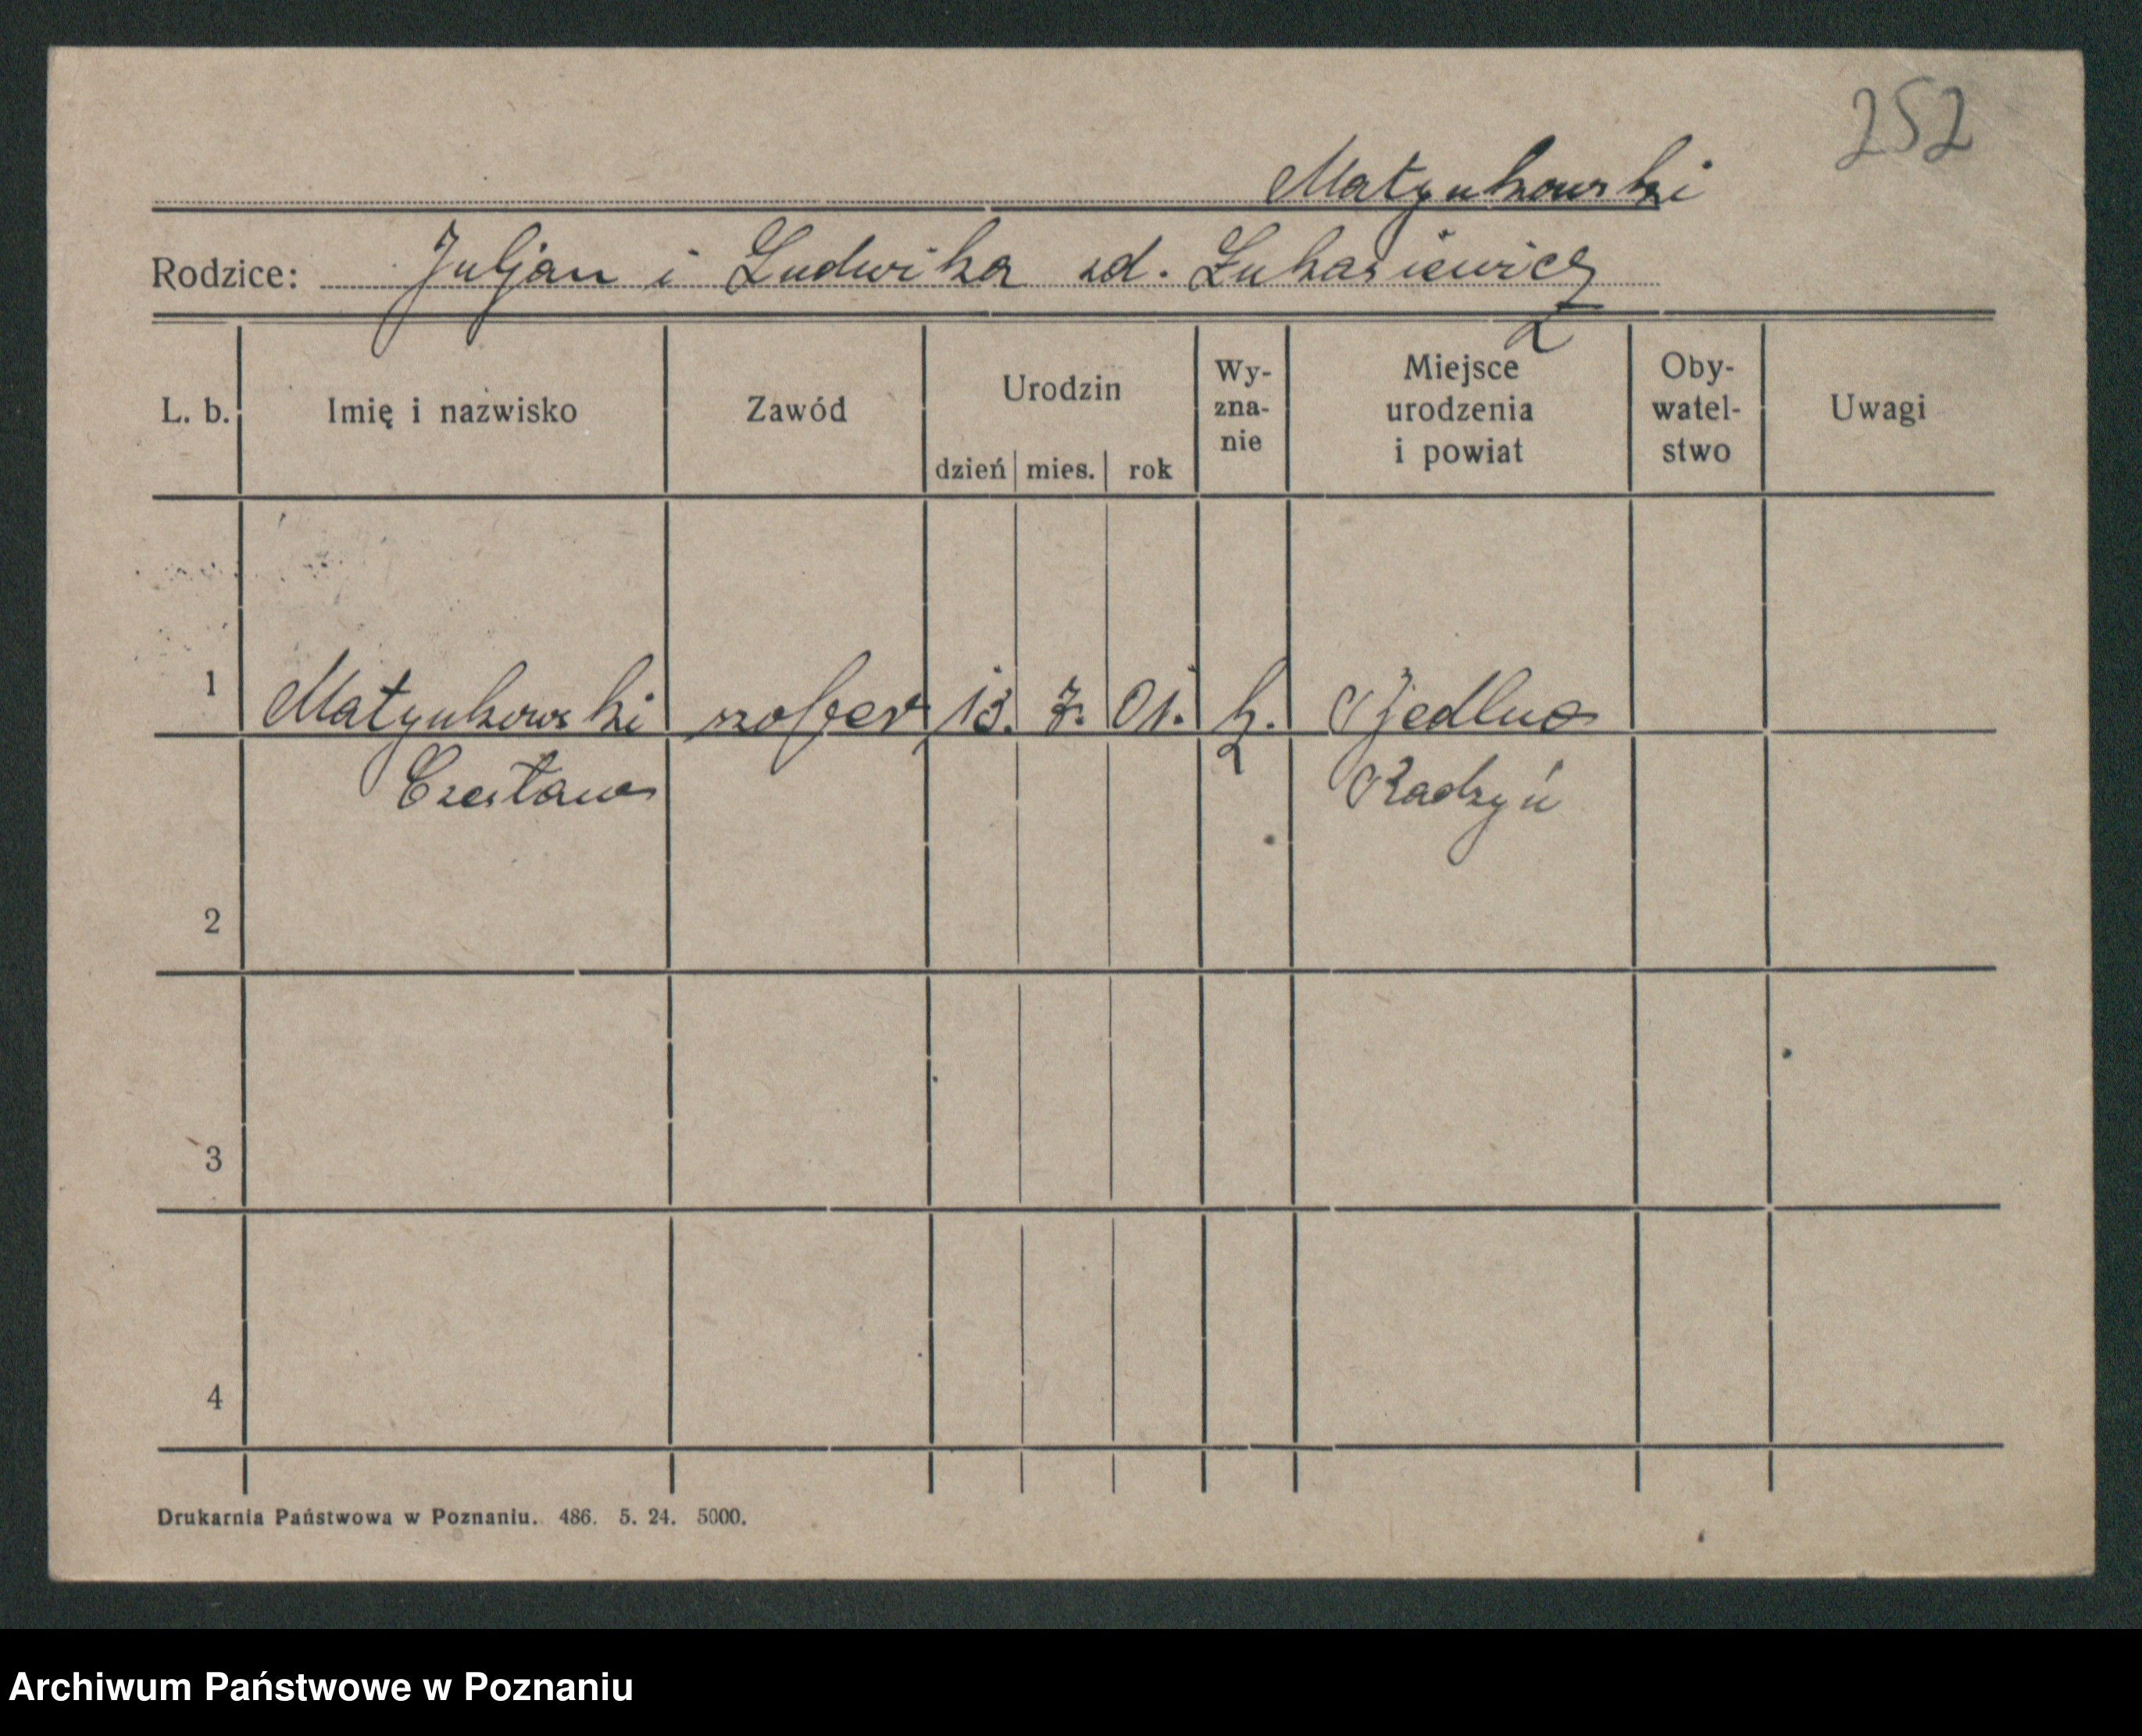 252
Matynkowski
Rodzice: Juljan i Ludwika zd. Łukasiewicz
L. b. Imię i nazwisko Zawód Urodzin dzień mies. rok Wy-zna-nie Miejsce urodzenia i powiat Oby-watel-stwo Uwagi
1 Matynkowski szofer 13. 7. 01. k.
Czesław Radzyń
2
3
4
Drukarnia Państwowa w Poznaniu. 486. 5. 24. 5000.
Archiwum Państwowe w Poznaniu